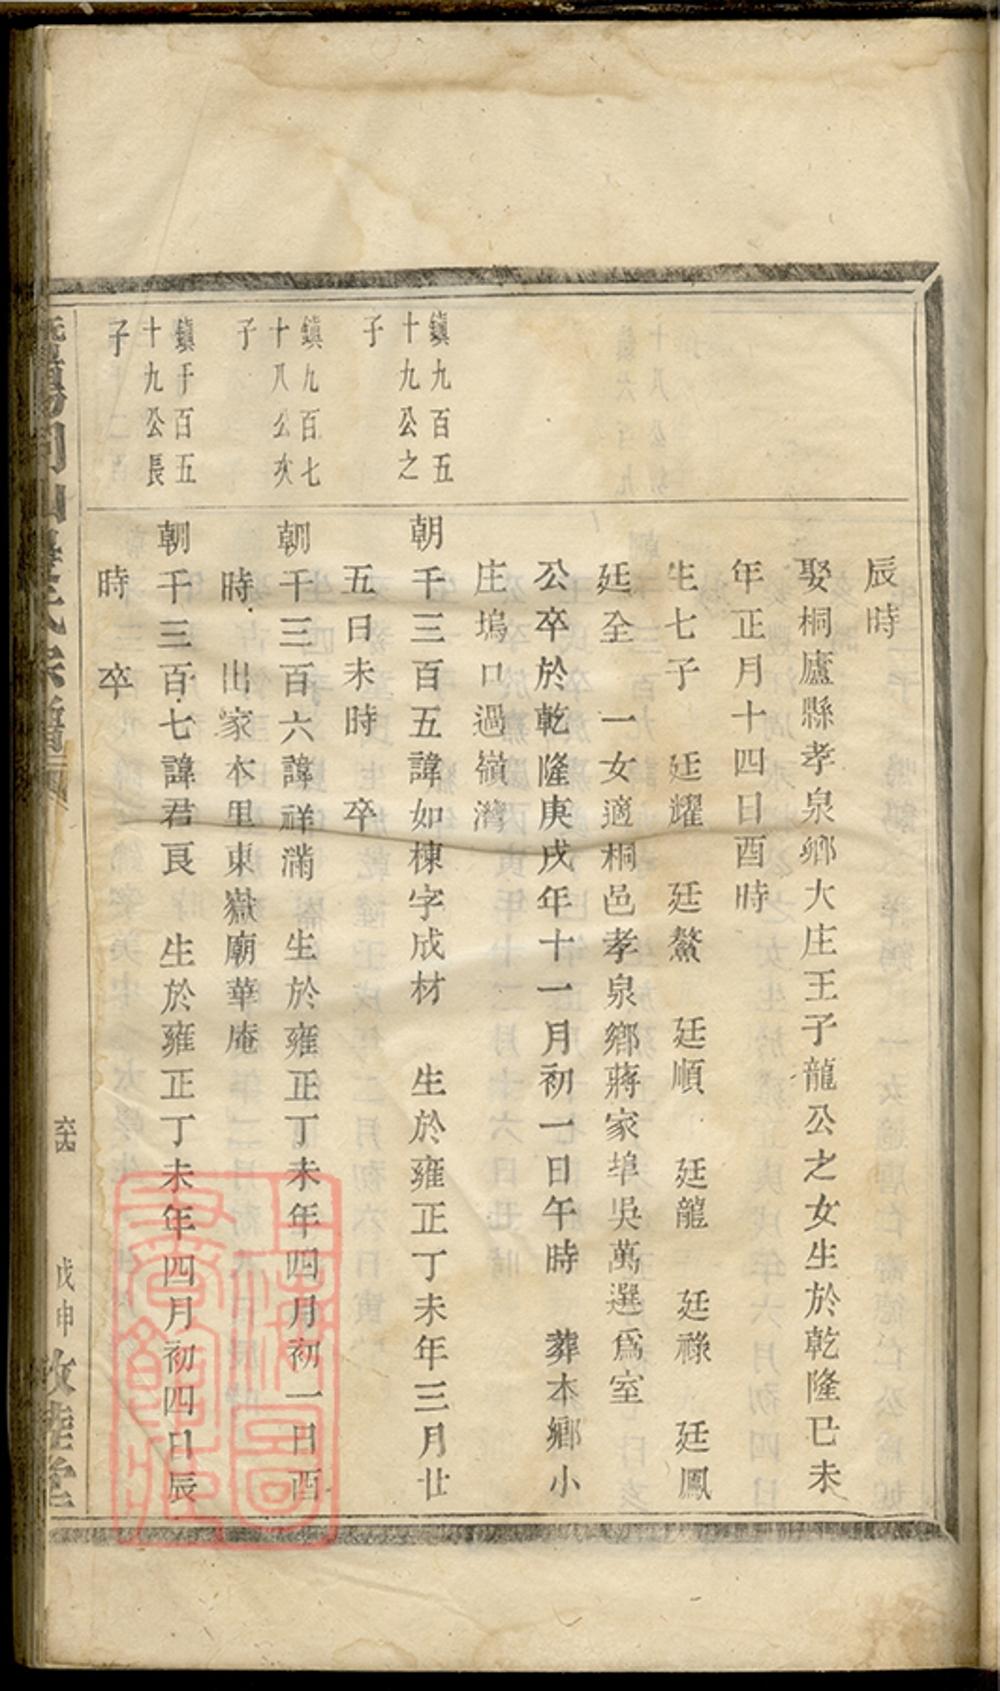 辰時
娶桐廬縣孝泉鄉大庄王子龍公之女生於乾隆巳未
年正月十四日酉時
生七子　廷耀　廷鰲　廷順　廷龍　廷祿　廷鳳
廷全　一女適桐邑孝泉鄉蔣家埠吳萬選爲室
公卒於乾隆庚戌年十一月初一日午時　葬本鄉小
庄塢口過嶺灣
鎮九百五
十九公之
子
朝千三百五諱如棟字成材　生於雍正丁未年三月廿
五日未時　卒
鎮九百七
十八公次
子
朝千三百六諱祥滿　生於雍正丁未年四月初一日酉
時　出家本里東嶽廟華庵
鎮千百五
十九公長
子
朝千三百七諱君良　生於雍正丁未年四月初四日辰
時　卒
戊申
上海圖
書館藏